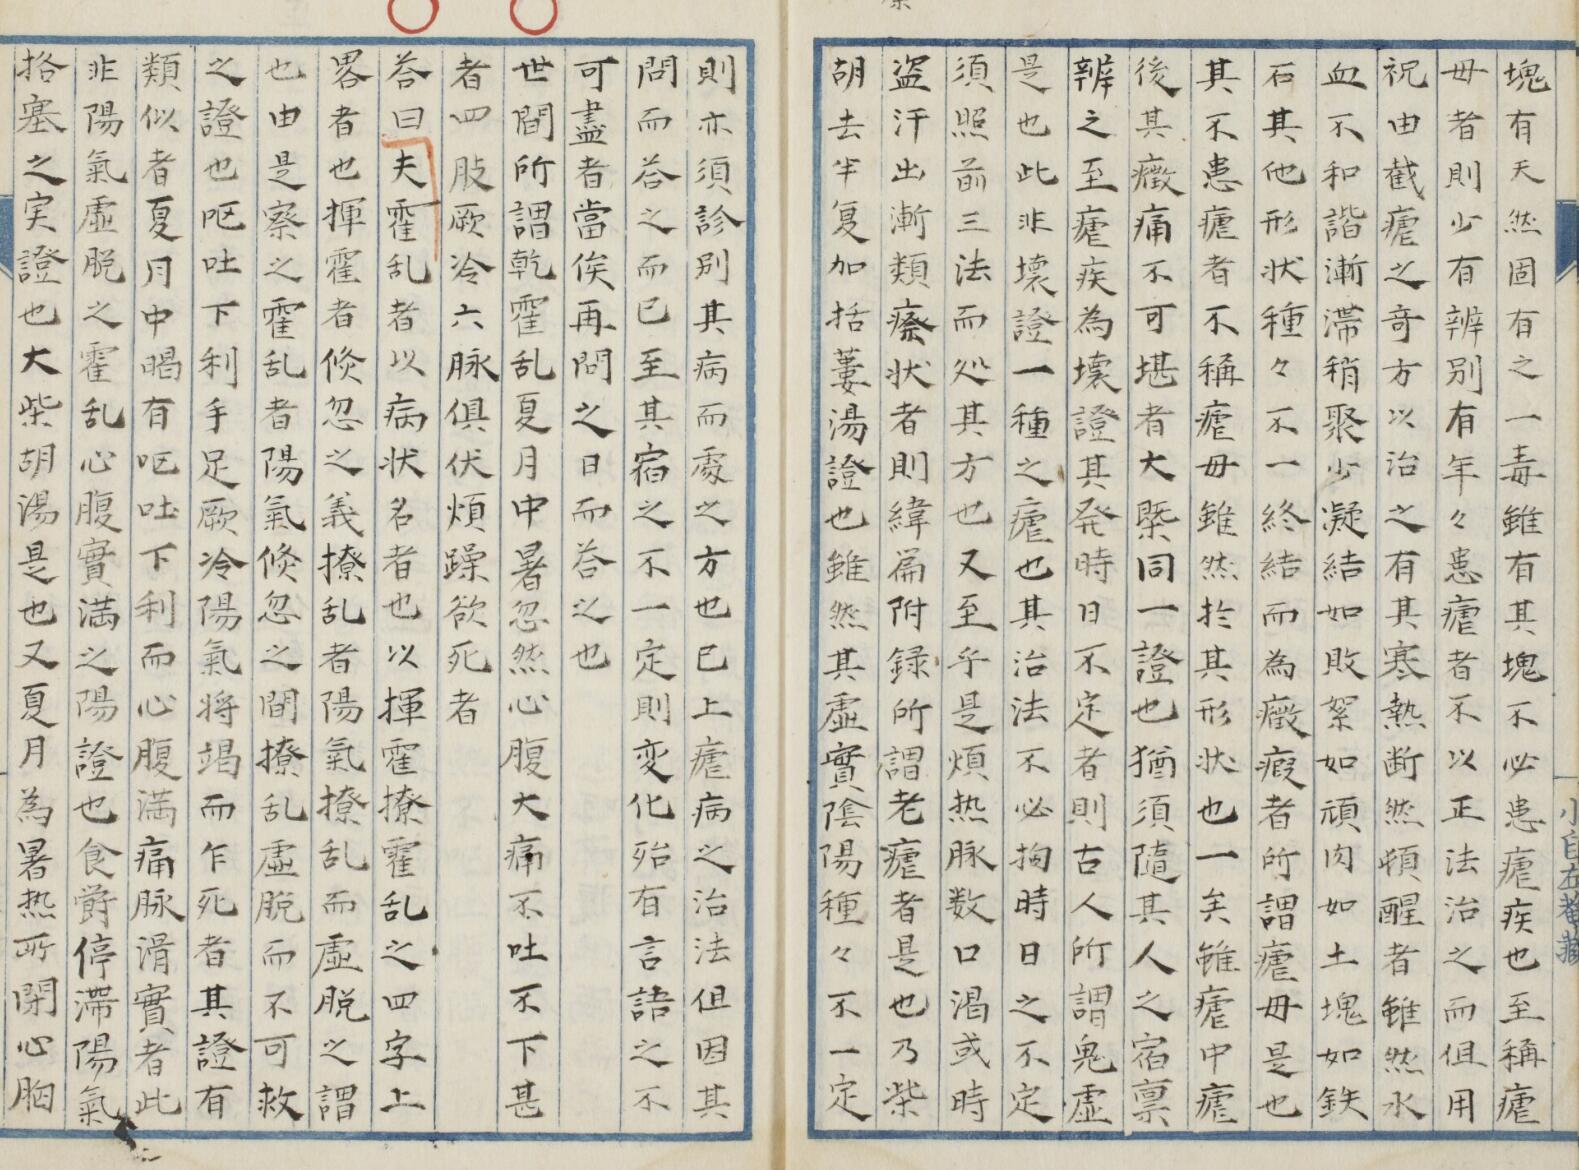 塊有天然固有之一毒雖有其塊不必患瘧疾也至稱瘧
毋者則少有辨別有年々患瘧者不以正法治之而但用
祝由截瘧之奇方以治之有其寒熱断然頓醒者雖然水
血不和諧漸滞稍聚少凝結如敗絮如頑肉如土塊如鉄
石其他形状種々不一終結而為癥瘕者所謂瘧毋是也
其不患瘧者不稱瘧毋雖然於其形状也一矣雖瘧中瘧
後其癥痛不可堪者大槩同一證也猶須隨其人之宿禀
辨之至瘧疾為壊證其発時日不定者則古人所謂鬼虚
是也此非壊證一種之瘧也其治法不必拘時日之不定
須照前三法而処其方也又至乎是煩热脉数口渇或時
盗汗出漸類瘵状者則緯篇附録所謂老瘧者是也乃柴
胡去半夏加括蔞湯證也雖然其虚實陰陽種々不一定
則亦須診別其病而處之方也已上瘧病之治法但因其
問而荅之而已至其宿之不一定則变化殆有言語之不
可盡者當俟再問之日而荅之也
世間所謂乾霍乱夏月中暑忽然心腹大痛不吐不下甚
者四肢厥冷六脉俱伏煩躁欲死者
荅曰夫霍乱者以病状名者也以揮霍撩霍乱之四字上
畧者也揮霍者倏忽之義撩乱者陽氣撩乱而虚脱之謂
也由是察之霍乱者陽氣倏忽之間撩乱虚脱而不可救
之證也呕吐下利手足厥冷陽氣将竭而乍死者其證有
類似者夏月中暍有呕吐下利而心腹満痛脉滑實者此
非陽氣虚脱之霍乱心腹實満之陽證也食欝停滞陽氣
挌塞之実證也大柴胡湯是也又夏月為暑热所閉心胸
小自在菴藏